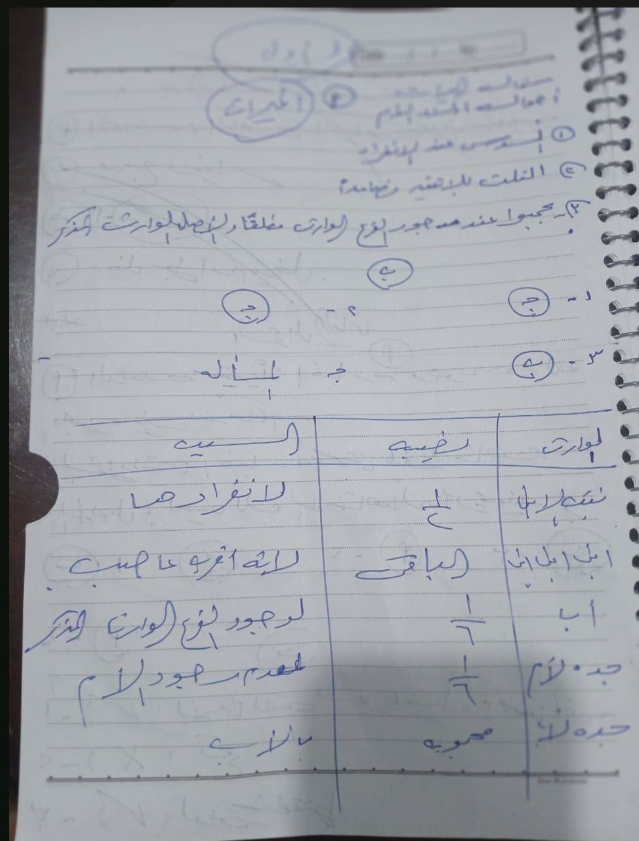 الميراث
أحوال
① السدس عند الانفراد
② الثلث للاثنين فصاعدا
③- يحجبوا عند وجود الفرع الوارث مطلقًا والأصل الوارث المذكر
ب
١- جـ ٢- جـ
٣- ب جـ - المسألة
الوارث نصيبه السبب
بنت الابن ١/٢ لانفرادها
ابن ابن ابن الباقى لأنه أقرب عاصب
أب ١/٦ لوجود الفرع الوارث المذكر
جدة لأم ١/٦ لعدم وجود الأم
جدة لأب محجوبة بالأب